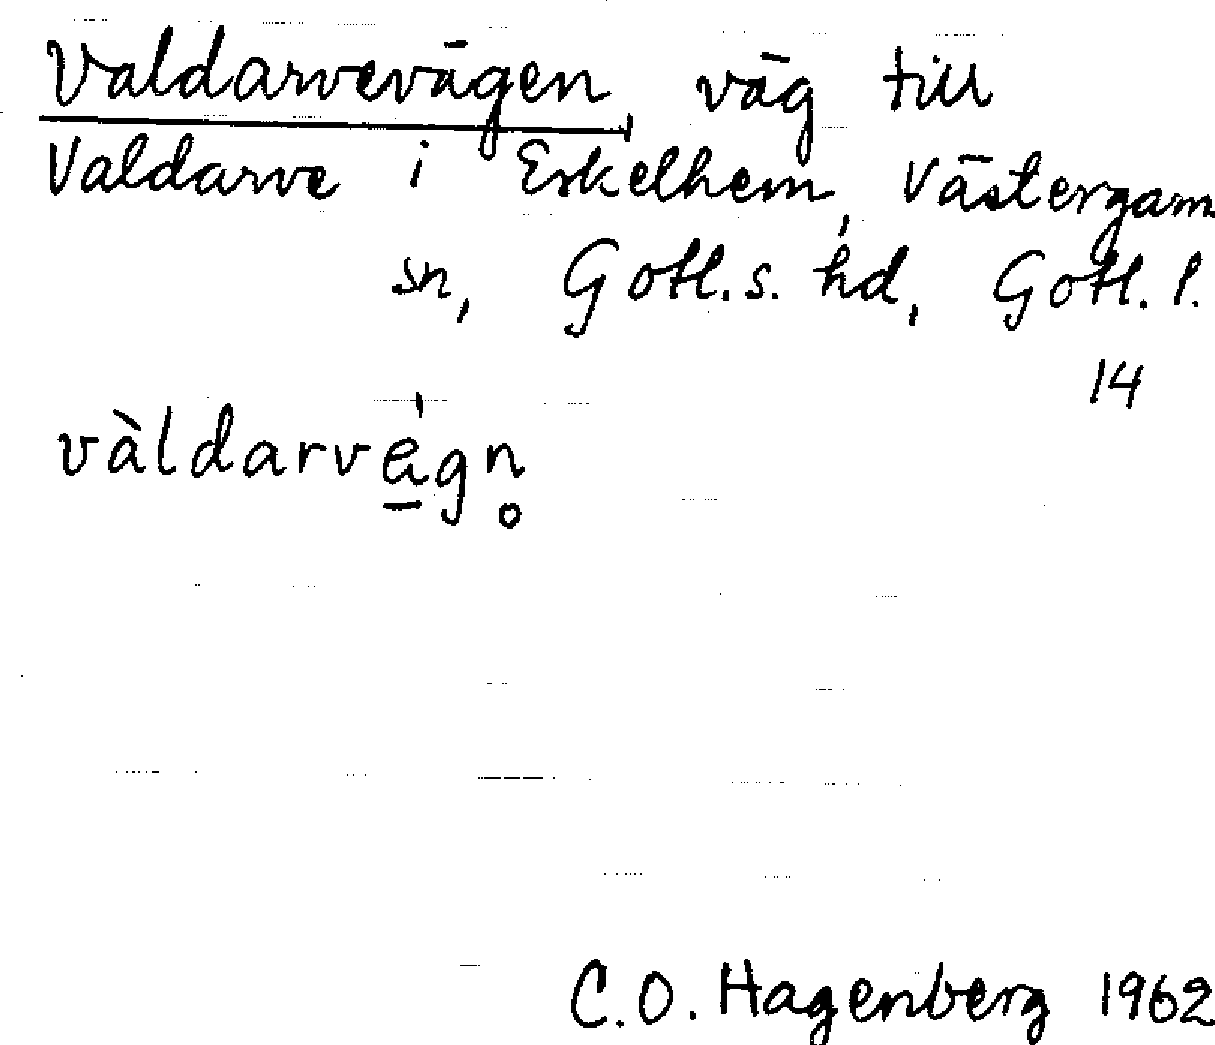 Valdarvevägen, väg till
Valdarve i Eskelhem, Västergarn
sn, Gotl.s. hd, Gotl. l.
14
vàldarvä̱́gn̥
C.O. Hagenberg 1962